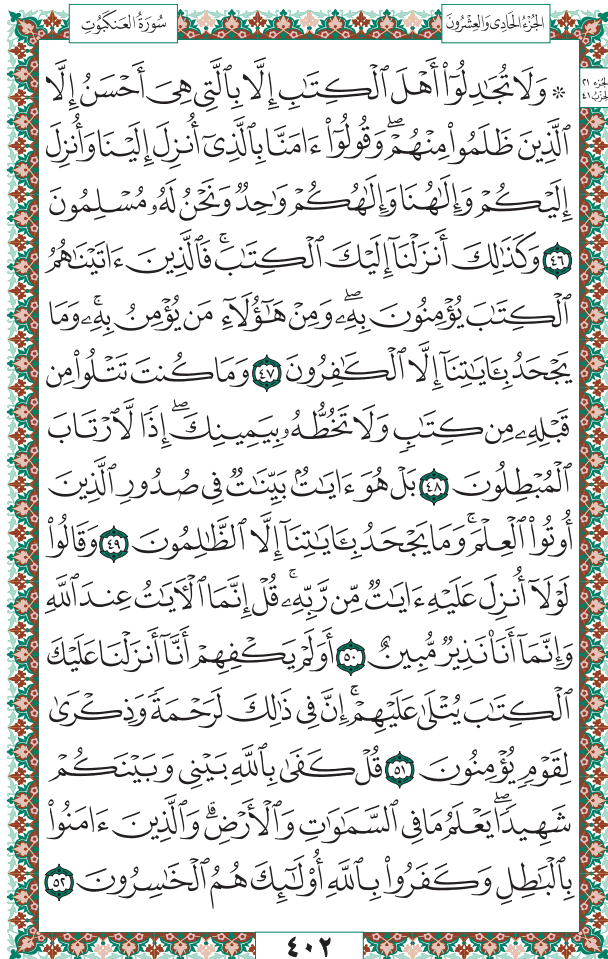 الجُزْءُ الحَادِى وَالعِشْرُونَ
سُورَةُ العَنكَبُوتِ
الجزء ٢١
الحزب ٤١
۞ وَلَا تُجَٰدِلُوٓا۟ أَهْلَ ٱلْكِتَٰبِ إِلَّا بِٱلَّتِى هِىَ أَحْسَنُ إِلَّا
ٱلَّذِينَ ظَلَمُوا۟ مِنْهُمْ ۖ وَقُولُوٓا۟ ءَامَنَّا بِٱلَّذِىٓ أُنزِلَ إِلَيْنَا وَأُنزِلَ
إِلَيْكُمْ وَإِلَٰهُنَا وَإِلَٰهُكُمْ وَٰحِدٌ وَنَحْنُ لَهُۥ مُسْلِمُونَ
٤٦ وَكَذَٰلِكَ أَنزَلْنَآ إِلَيْكَ ٱلْكِتَٰبَ ۚ فَٱلَّذِينَ ءَاتَيْنَٰهُمُ
ٱلْكِتَٰبَ يُؤْمِنُونَ بِهِۦ ۖ وَمِنْ هَٰٓؤُلَآءِ مَن يُؤْمِنُ بِهِۦ ۚ وَمَا
يَجْحَدُ بِـَٔايَٰتِنَآ إِلَّا ٱلْكَٰفِرُونَ ٤٧ وَمَا كُنتَ تَتْلُوا۟ مِن
قَبْلِهِۦ مِن كِتَٰبٍ وَلَا تَخُطُّهُۥ بِيَمِينِكَ ۖ إِذًا لَّٱرْتَابَ
ٱلْمُبْطِلُونَ ٤٨ بَلْ هُوَ ءَايَٰتٌۢ بَيِّنَٰتٌ فِى صُدُورِ ٱلَّذِينَ
أُوتُوا۟ ٱلْعِلْمَ ۚ وَمَا يَجْحَدُ بِـَٔايَٰتِنَآ إِلَّا ٱلظَّٰلِمُونَ ٤٩ وَقَالُوا۟
لَوْلَآ أُنزِلَ عَلَيْهِ ءَايَٰتٌ مِّن رَّبِّهِۦ ۚ قُلْ إِنَّمَا ٱلْـَٔايَٰتُ عِندَ ٱللَّهِ
وَإِنَّمَآ أَنَا۠ نَذِيرٌ مُّبِينٌ ٥٠ أَوَلَمْ يَكْفِهِمْ أَنَّآ أَنزَلْنَا عَلَيْكَ
ٱلْكِتَٰبَ يُتْلَىٰ عَلَيْهِمْ ۚ إِنَّ فِى ذَٰلِكَ لَرَحْمَةً وَذِكْرَىٰ
لِقَوْمٍ يُؤْمِنُونَ ٥١ قُلْ كَفَىٰ بِٱللَّهِ بَيْنِى وَبَيْنَكُمْ
شَهِيدًا ۖ يَعْلَمُ مَا فِى ٱلسَّمَٰوَٰتِ وَٱلْأَرْضِ ۗ وَٱلَّذِينَ ءَامَنُوا۟
بِٱلْبَٰطِلِ وَكَفَرُوا۟ بِٱللَّهِ أُو۟لَٰٓئِكَ هُمُ ٱلْخَٰسِرُونَ ٥٢
٤٠٢